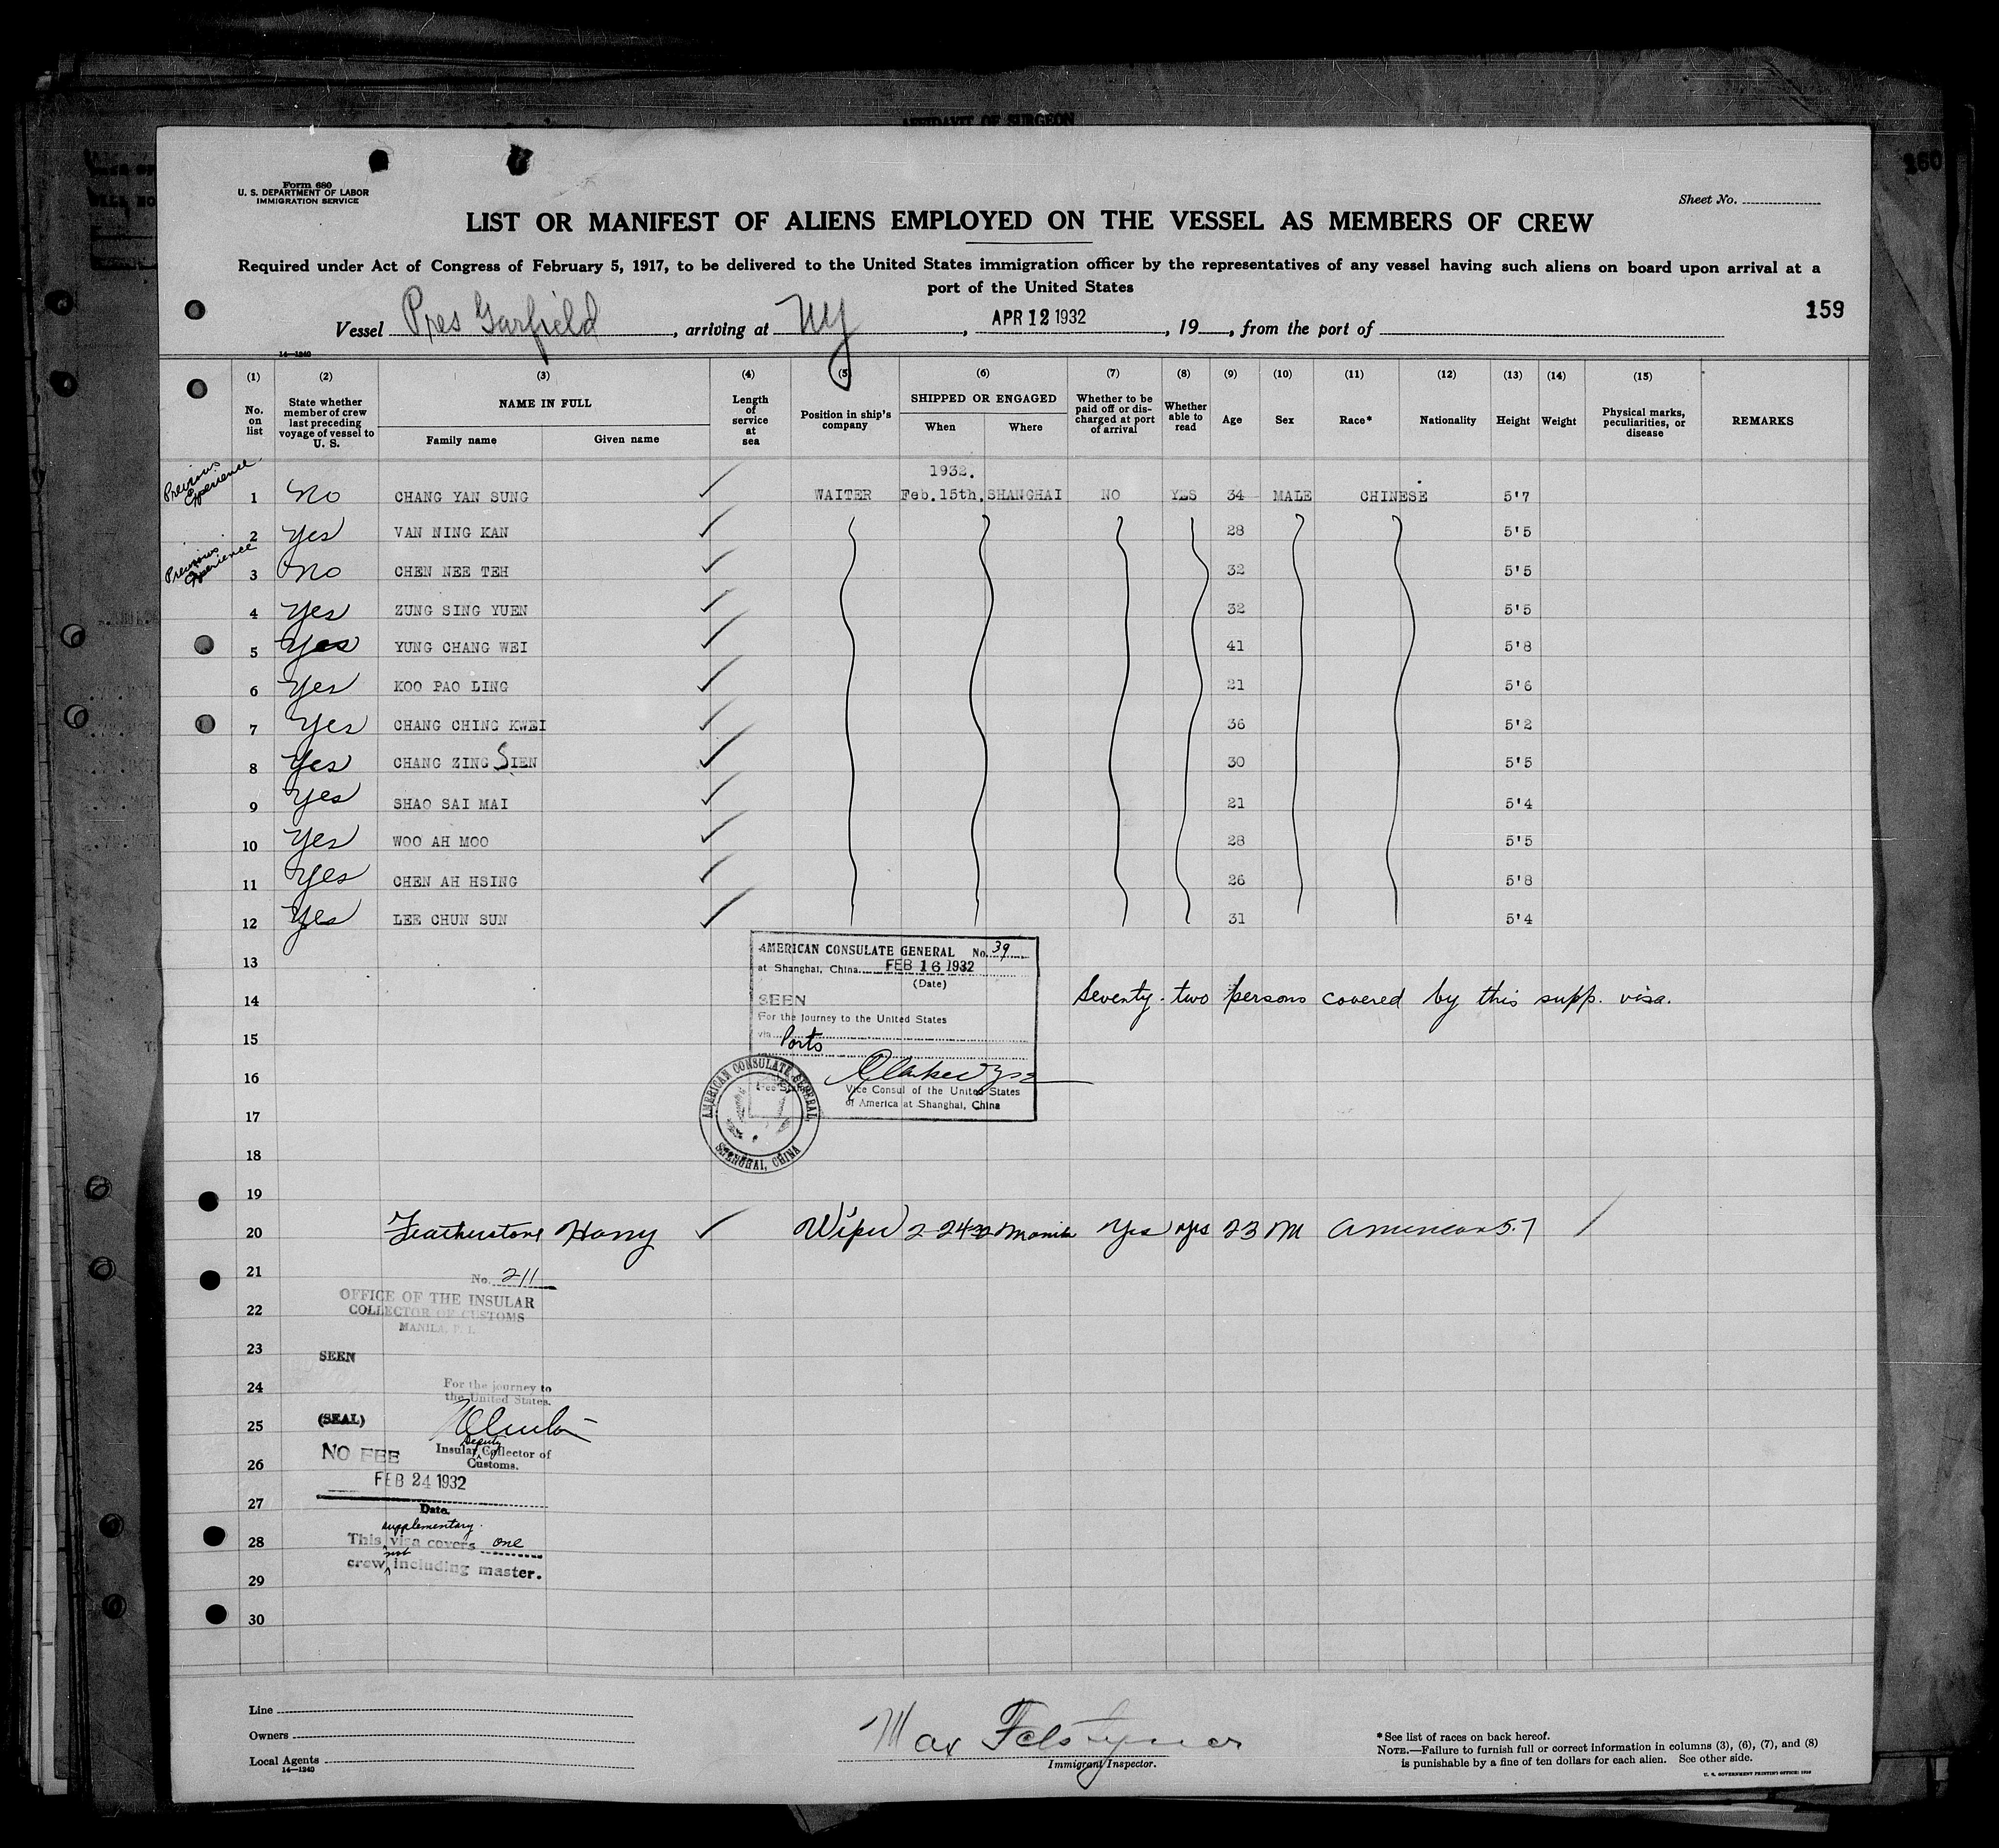 AFFIDAVIT OF SURGEON
160
Form 680
U. S. DEPARTMENT OF LABOR
IMMIGRATION SERVICE
Sheet No.
LIST OR MANIFEST OF ALIENS EMPLOYED ON THE VESSEL AS MEMBERS OF CREW
Required under Act of Congress of February 5, 1917, to be delivered to the United States immigration officer by the representatives of any vessel having such aliens on board upon arrival at a
port of the United States
159
Vessel Pres Garfield, arriving at NY, APR 12 1932, 19, from the port of
14—1240
(1) (2) (3) (4) (5) (6) (7) (8) (9) (10) (11) (12) (13) (14) (15)
No. on list State whether member of crew last preceding voyage of vessel to U. S. NAME IN FULL Family name Given name Length of service at sea Position in ship's company SHIPPED OR ENGAGED When Where Whether to be paid off or discharged at port of arrival Whether able to read Age Sex Race* Nationality Height Weight Physical marks, peculiarities, or disease REMARKS
1932.
Previous Experience 1 No CHANG YAN SUNG WAITER Feb.15th, SHANGHAI NO YES 34 MALE CHINESE 5'7
2 Yes VAN NING KAN 28 5'5
Previous Experience 3 No CHEN NEE TEH 32 5'5
4 Yes ZUNG SING YUEN 32 5'5
5 Yes YUNG CHANG WEI 41 5'8
6 Yes KOO PAO LING 21 5'6
7 Yes CHANG CHING KWEI 36 5'2
8 Yes CHANG ZING SIEN 30 5'5
9 Yes SHAO SAI MAI 21 5'4
10 Yes WOO AH MOO 28 5'5
11 Yes CHEN AH HSING 26 5'8
12 Yes LEE CHUN SUN 31 5'4
13
14
15
16
17
18
19
AMERICAN CONSULATE GENERAL No. 39
at Shanghai, China FEB 16 1932
(Date)
SEEN
For the journey to the United States
via Ports
Vice Consul of the United States
of America at Shanghai, China
AMERICAN CONSULATE GENERAL, SHANGHAI, CHINA
Seventy-two persons covered by this supp. visa.
20 Featherstone Harry Wiper 2-24-32 Manila Yes yes 23 M American 5.7
21
22
23
24
25
26
27
28
29
30
No. 211
OFFICE OF THE INSULAR
COLLECTOR OF CUSTOMS
MANILA, P. I.
SEEN
For the journey to
the United States.
(SEAL)
Deputy
Insular Collector of
Customs.
NO FEE
FEB 24 1932
Date.
supplementary
This visa covers one
not
crew including master.
Line
Owners
Local Agents
14—1240
Max
Immigrant Inspector.
*See list of races on back hereof.
NOTE.—Failure to furnish full or correct information in columns (3), (6), (7), and (8)
is punishable by a fine of ten dollars for each alien. See other side.
U. S. GOVERNMENT PRINTING OFFICE: